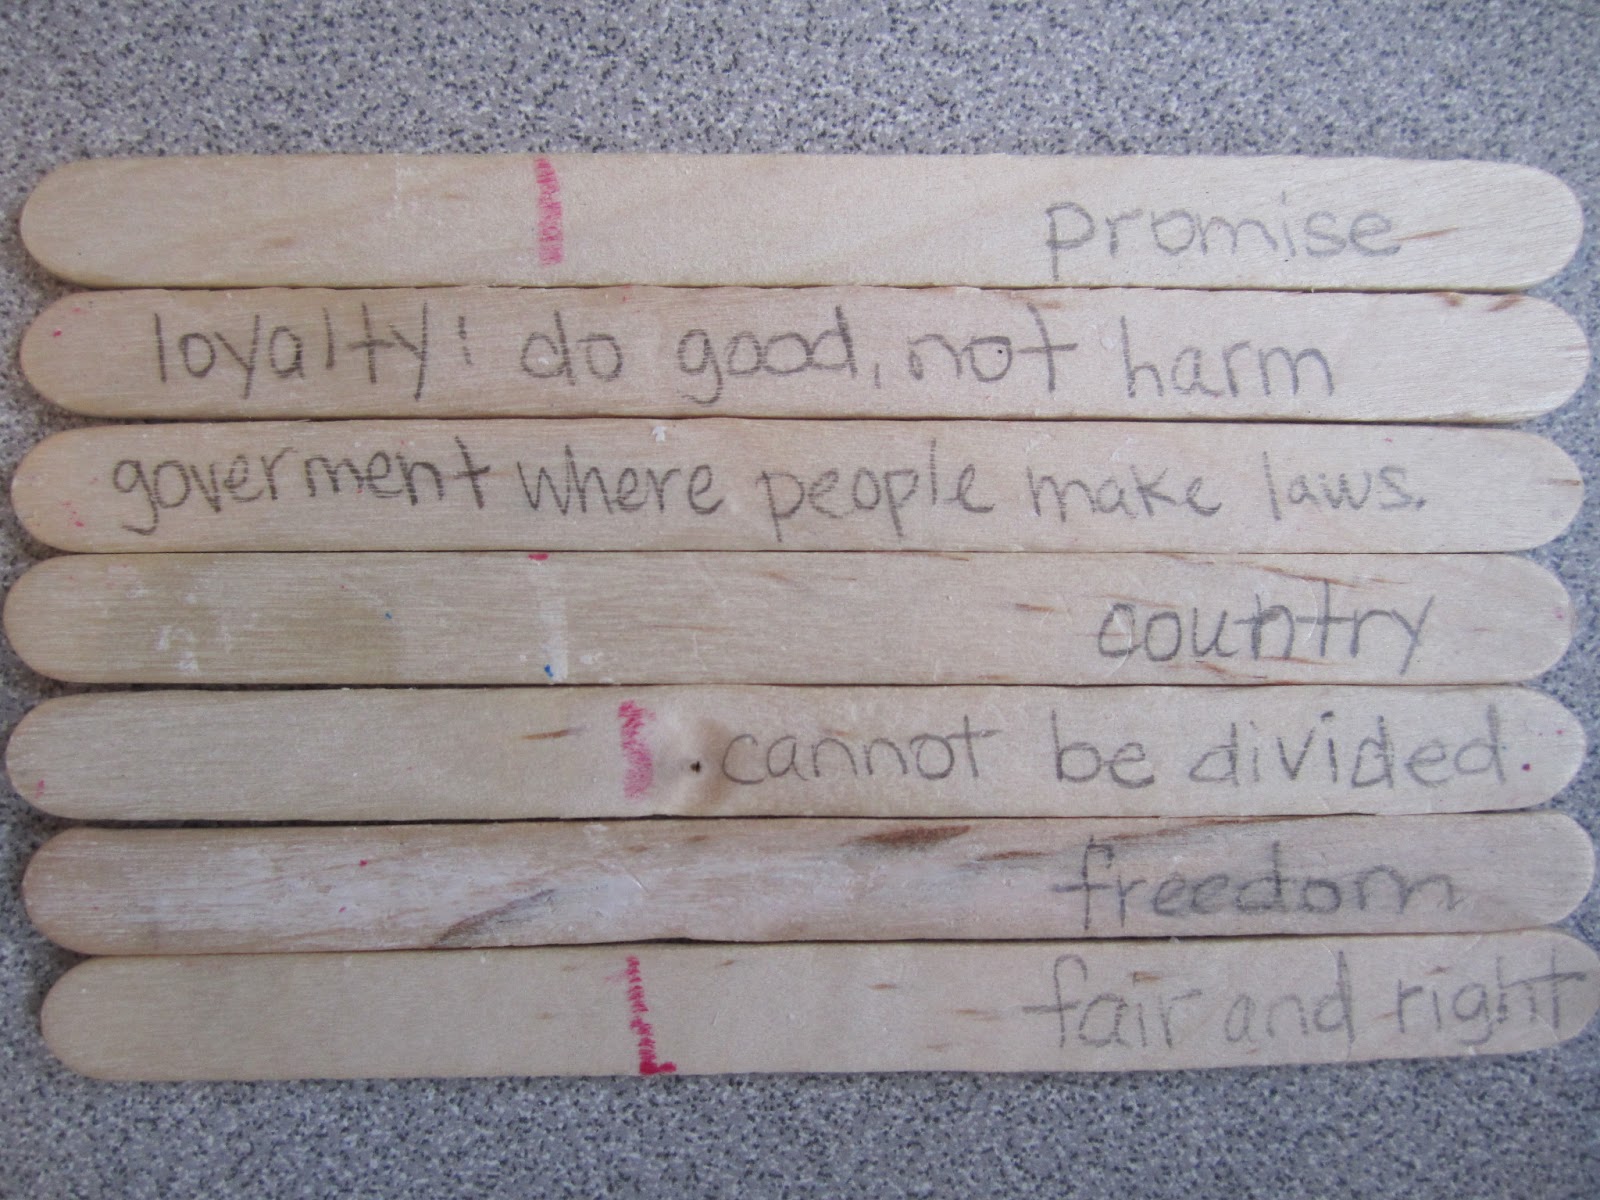 promise
loyalty: do good, not harm
goverment where people make laws.
country
cannot be divided.
freedom
fair and right